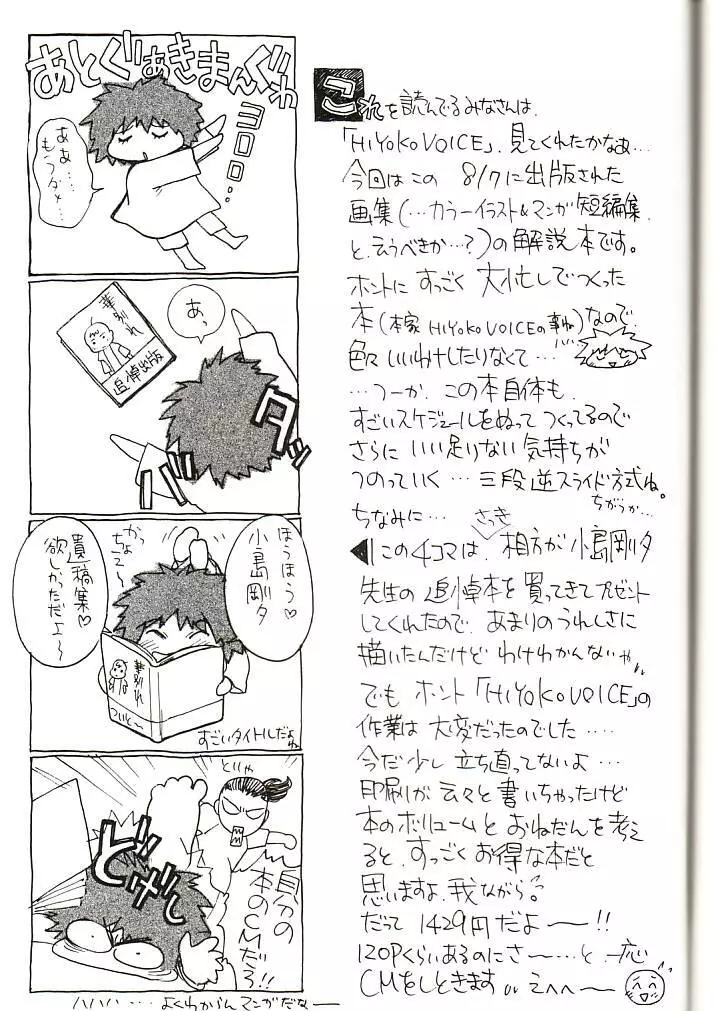 あとぐぁきまんぐゎ
ヨロロ…
ああ…
もうダメ…
あっ
華別れ
追悼出版
バタッ
ほうほう♡
小島剛夕
遺稿集♡
欲しかっただよ〜
かっちょえ〜
華別れ
すごいタイトルだよね
どいや
どげしっ
自分の
本のCMだろ!!
ハハハ…よくわからんマンガだなー
これを読んでるみなさんは、
「HIYOKO VOICE」、見てくれたかなぁ…
今回はこの 8/17に出版された
画集(…カラーイラスト&マンガ短編集、
と、云うべきか…?)の解説本です。
ホントに すっごく 大忙しでつくった
本(本家 HIYOKO VOICEの事ね)なので、
色々 いいわけしたりなくて…
…つーか、この本自体も、
すごいスケジュールをぬって つくってるので
さらに いい足りない 気持ちが
つのっていく… 三段逆スライド方式ね。
ちがうか…
ちなみに…
◀この4コマは、さっき 相方が 小島剛夕
先生の 追悼本を 買ってきて プレゼント
してくれたので、あまりの うれしさに
描いたんだけど わけわかんないや
でも ホント「HIYOKO VOICE」の
作業は 大変だったのでした…
今だ少し 立ち直ってないよ…
印刷が 云々と 書いちゃったけど
本のボリュームと おねだんを 考え
ると、すっごく お得な本だと
思いますよ、我ながら。
だって 1429円だよ〜!!
120Pくらいあるのにさ〜…と、一応
CMをしときます えへへ〜